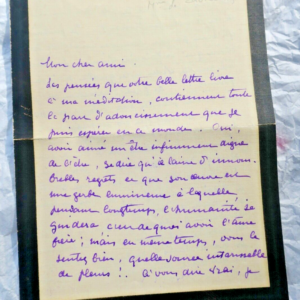 Mon cher ami.
Les pensées que votre belle lettre livre
à ma méditation, contiennent toute
la part d'adoucissement que je
puis espérer en ce monde. Oui,
avoir aimé un être infiniment digne
de l'être, se dire qu'il laisse d'innom-
brables regrets et que son œuvre est
une gerbe lumineuse à laquelle
pendant longtemps, l'humanité se
guidera c'en de quoi avoir l'âme
fière; mais en même temps, vous le
sentez bien, quelle source intarissable
de pleurs!. A vous dire vrai, je